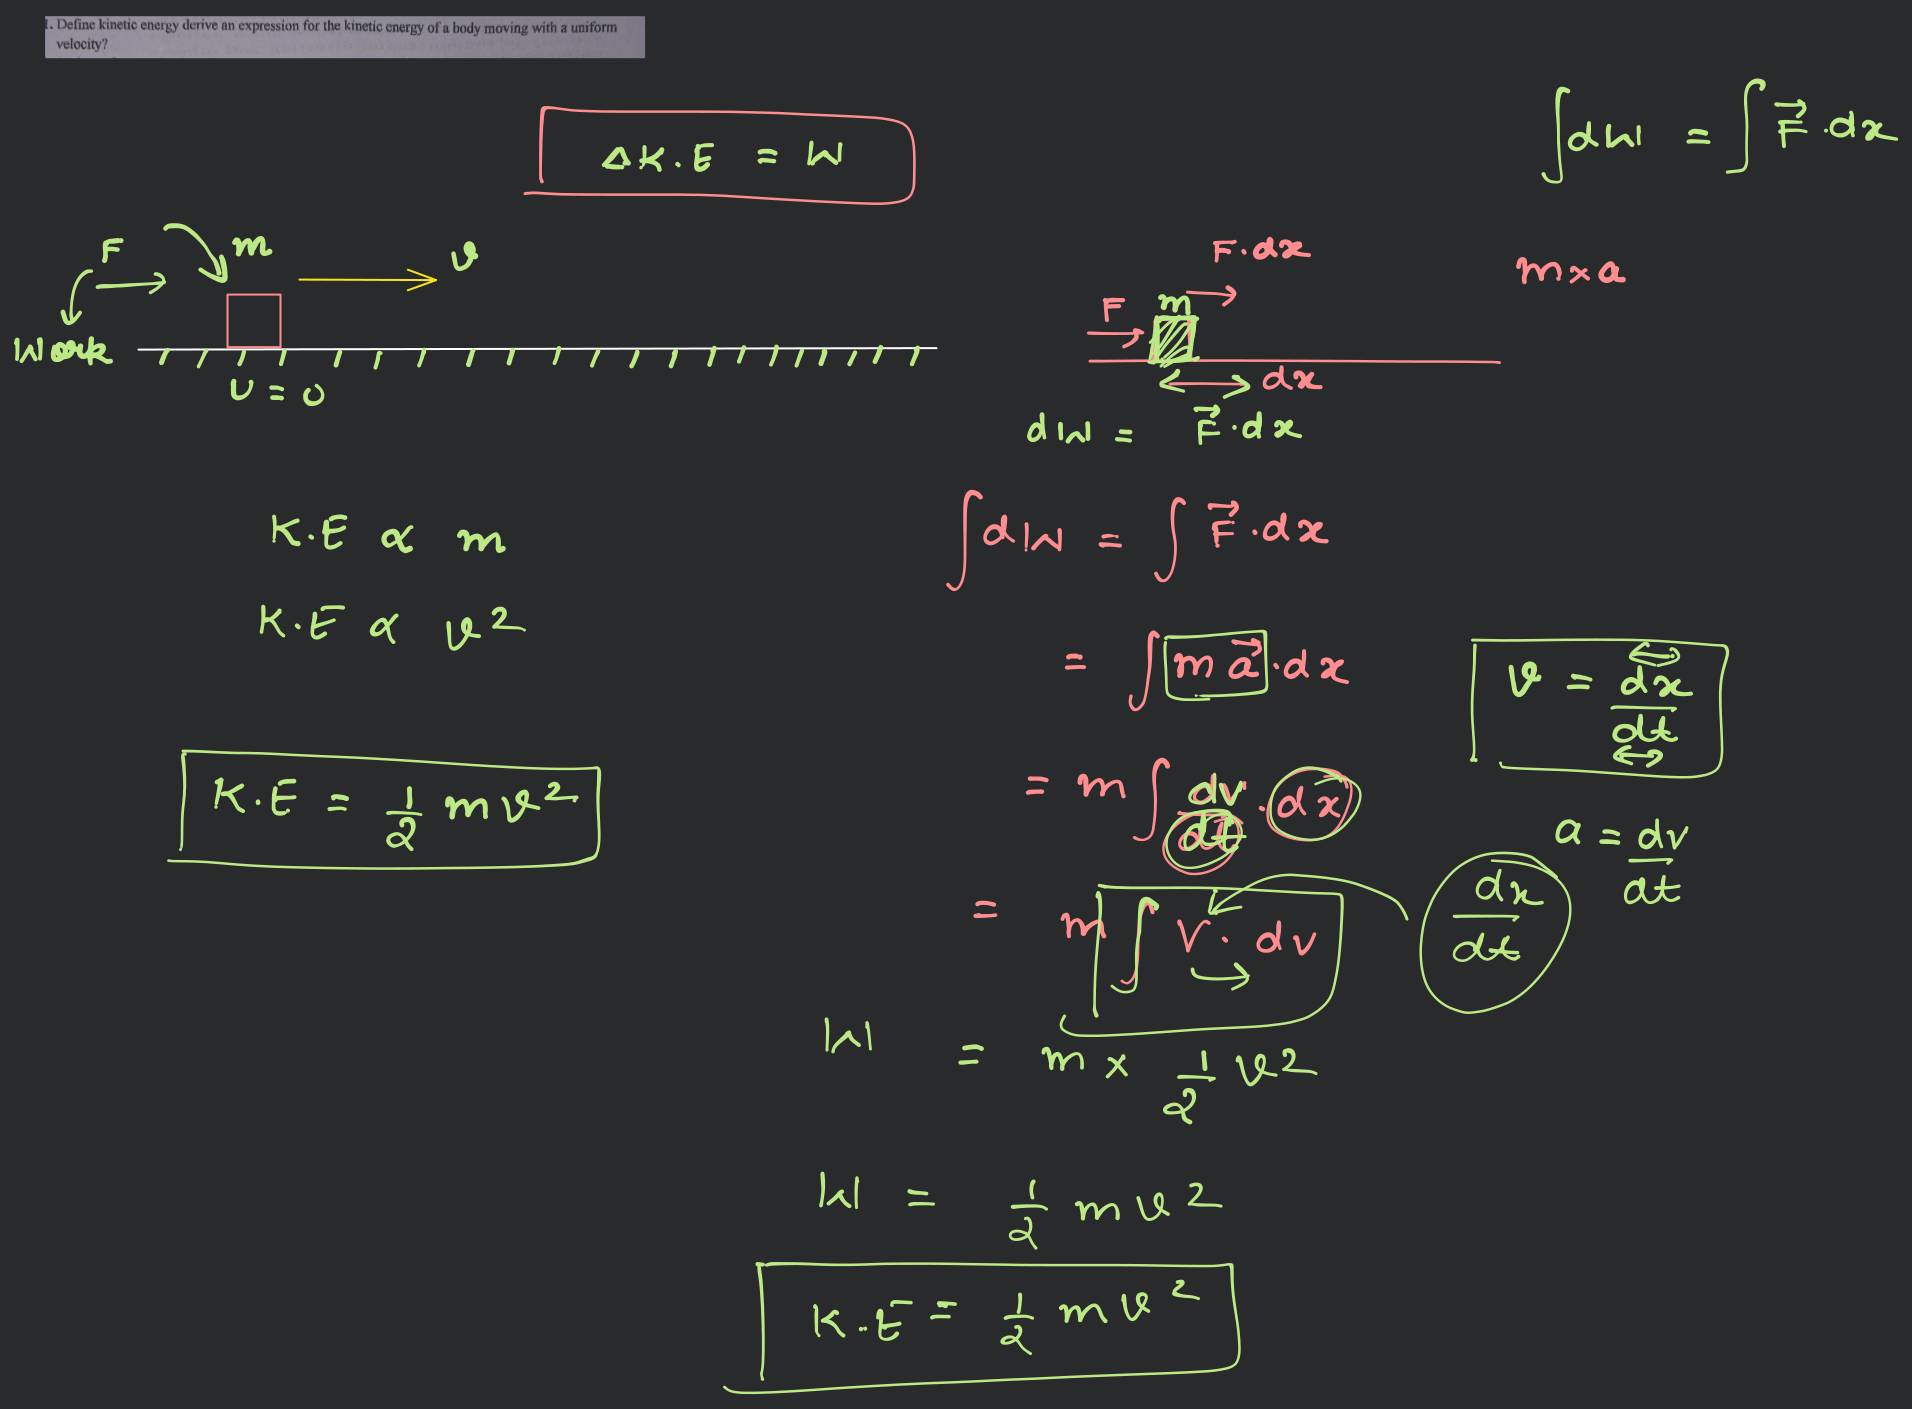 1. Define kinetic energy derive an expression for the kinetic energy of a body moving with a uniform
velocity?
ΔK.E = W
∫dW = ∫F⃗.dx
F
m
v
Work
U = 0
F.dx
m×a
F
m
dx
dW = F⃗.dx
K.E ∝ m
K.E ∝ v²
K.E = 1/2 mv²
∫dW = ∫F⃗.dx
= ∫m a⃗.dx
v = dx/dt
= m∫dv/dt . dx
a = dv/dt
dx/dt
= m∫V. dv
W = m × 1/2 v²
W = 1/2 mv²
K.E = 1/2 mv²